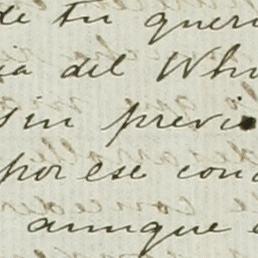 de tu queri
ia del Whi
sin previo
por ese con
aunque